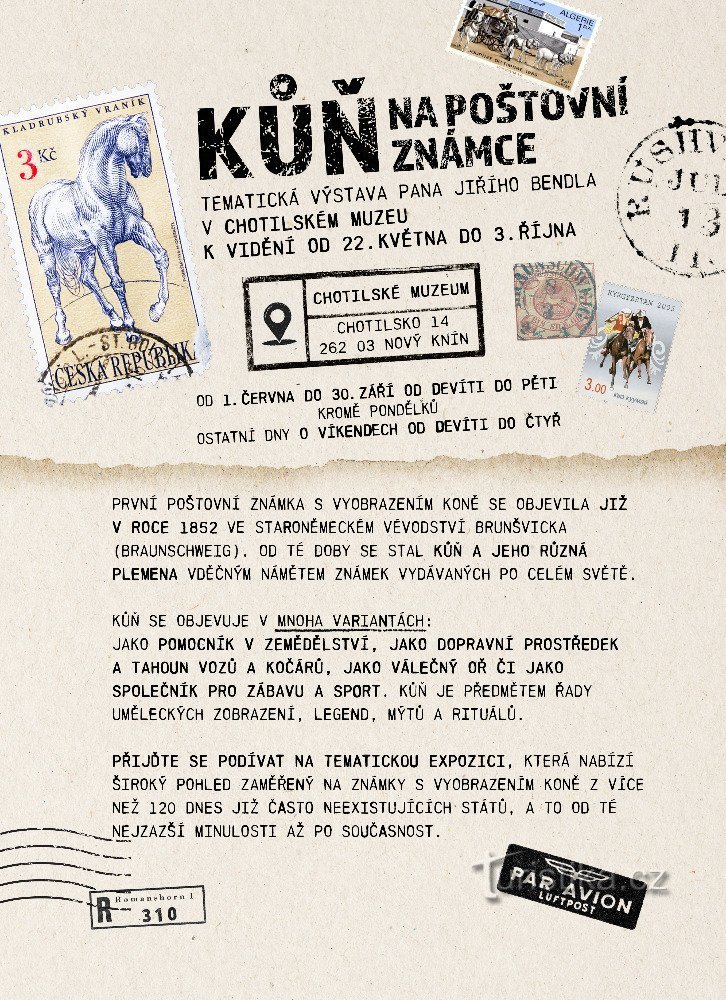 ALGERIE
1 DA
KŮŇ NA POŠTOVNÍ
ZNÁMCE
KLADRUBSKÝ VRANÍK
3 Kč
ČESKÁ REPUBLIKA
TEMATICKÁ VÝSTAVA PANA JIŘÍHO BENDLA
V CHOTILSKÉM MUZEU
K VIDĚNÍ OD 22.KVĚTNA DO 3.ŘÍJNA
RUSHV
JUL
13
CHOTILSKÉ MUZEUM
CHOTILSKO 14
262 03 NOVÝ KNÍN
KYRGYZSTAN
3.00
OD 1.ČERVNA DO 30.ZÁŘÍ OD DEVÍTI DO PĚTI
KROMĚ PONDĚLKŮ
OSTATNÍ DNY O VÍKENDECH OD DEVÍTI DO ČTYŘ
PRVNÍ POŠTOVNÍ ZNÁMKA S VYOBRAZENÍM KONĚ SE OBJEVILA JIŽ
V ROCE 1852 VE STARONĚMECKÉM VÉVODSTVÍ BRUNŠVICKA
(BRAUNSCHWEIG). OD TÉ DOBY SE STAL KŮŇ A JEHO RŮZNÁ
PLEMENA VDĚČNÝM NÁMĚTEM ZNÁMEK VYDÁVANÝCH PO CELÉM SVĚTĚ.
KŮŇ SE OBJEVUJE V MNOHA VARIANTÁCH:
JAKO POMOCNÍK V ZEMĚDĚLSTVÍ, JAKO DOPRAVNÍ PROSTŘEDEK
A TAHOUN VOZŮ A KOČÁRŮ, JAKO VÁLEČNÝ OŘ ČI JAKO
SPOLEČNÍK PRO ZÁBAVU A SPORT. KŮŇ JE PŘEDMĚTEM ŘADY
UMĚLECKÝCH ZOBRAZENÍ, LEGEND, MÝTŮ A RITUÁLŮ.
PŘIJĎTE SE PODÍVAT NA TEMATICKOU EXPOZICI, KTERÁ NABÍZÍ
ŠIROKÝ POHLED ZAMĚŘENÝ NA ZNÁMKY S VYOBRAZENÍM KONĚ Z VÍCE
NEŽ 120 DNES JIŽ ČASTO NEEXISTUJÍCÍCH STÁTŮ, A TO OD TÉ
NEJZAZŠÍ MINULOSTI AŽ PO SOUČASNOST.
R Romanshorn 1
310
Turistika.cz
PAR AVION
LUFTPOST